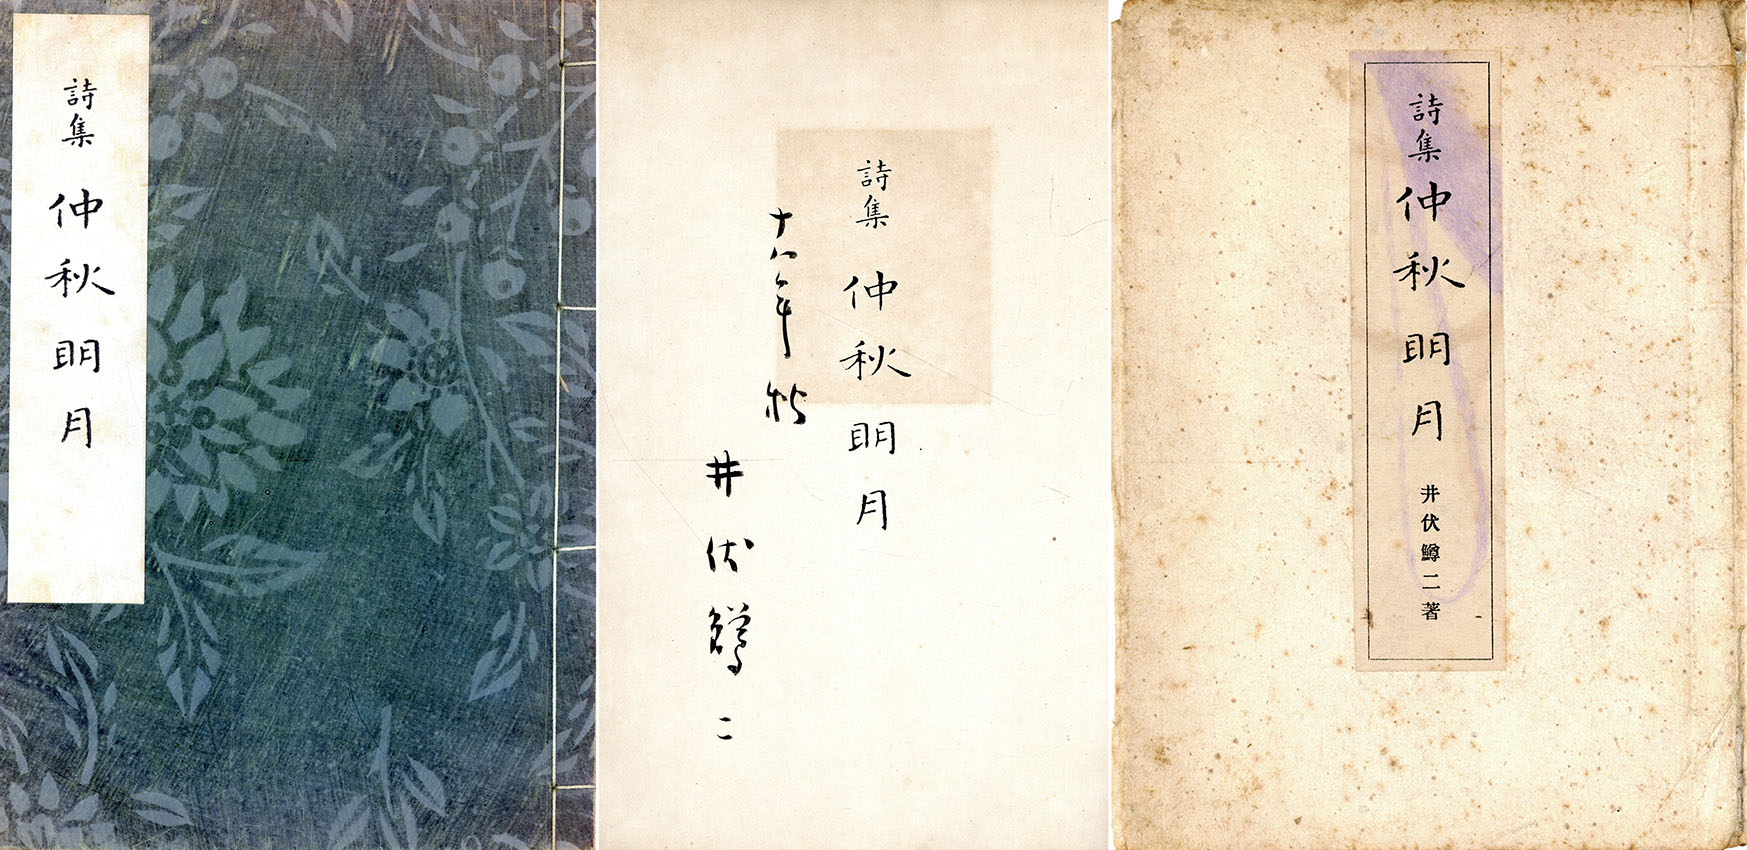 詩集 仲秋明月
詩集 仲秋明月
十八年秋
井伏鱒二
詩集 仲秋明月 井伏鱒二著